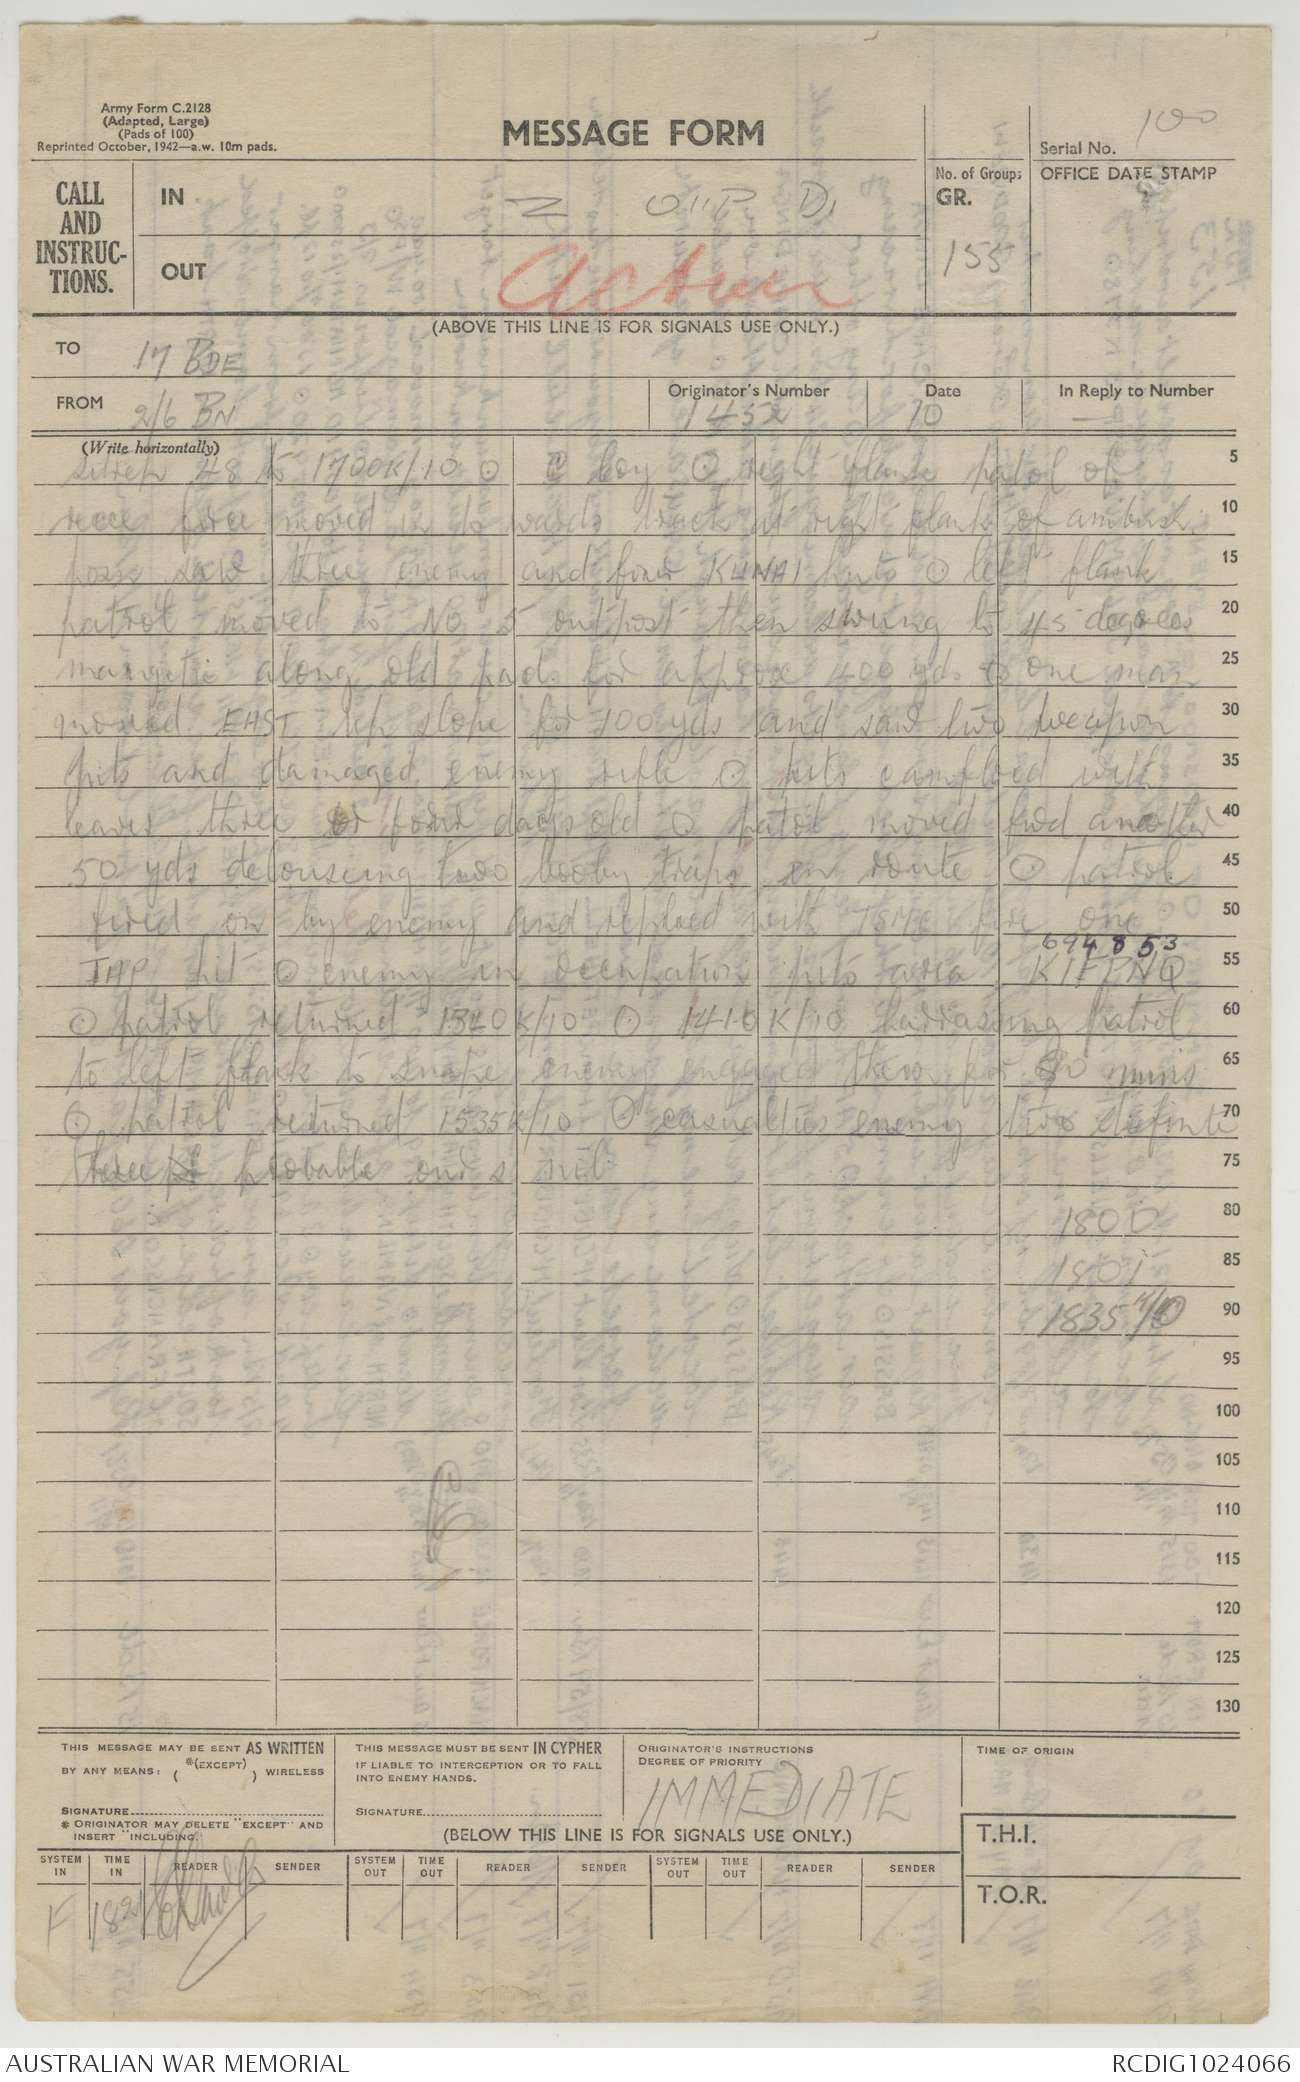 Army Form C.2128
(Adapted, Large)
(Pads of 100)
Reprinted October, 1942—a.w. 10m pads.
MESSAGE FORM
Serial No. 100
CALL AND INSTRUCTIONS.
IN Z O11P D1
OUT
Action
No. of Groups
GR.
155
OFFICE DATE STAMP
(ABOVE THIS LINE IS FOR SIGNALS USE ONLY.)
TO 17 BDE
FROM 2/6 BN
Originator's Number 1452
Date 10
In Reply to Number —
(Write horizontally)
sitrep 48 to 1700K/10 ⊙ C Coy ⊙ right flank patrol of 5
recce force moved in towards track at right flank of ambush 10
posn saw three enemy and four KUNAI huts ⊙ left flank 15
patrol moved to No 5 outpost then swung to 45 degrees 20
mangetic along old pad for approx 400 yds ⊙ one man 25
moved EAST up slope for 100 yds and saw two weapon 30
pits and damaged enemy rifle ⊙ pits camfloed with 35
leaves three or four days old ⊙ patrol moved fwd another 40
50 yds delousing two booby traps en route ⊙ patrol 45
fired on by enemy and replied with TSMG fire one 50
694853
JAP hit ⊙ enemy in occupation pits area KIFPNQ 55
⊙ patrol returned 1540K/10 ⊙ 1410K/10 harrassing patrol 60
to left flank to snipe enemy engaged them for mins 65
⊙ patrol returned 1535K/10 ⊙ casualties enemy two definte 70
three probable ours nil 75
1800 80
1801 85
1835K/10 90
95
100
105
110
115
120
125
130
THIS MESSAGE MAY BE SENT AS WRITTEN
BY ANY MEANS: ( *(EXCEPT) ) WIRELESS
SIGNATURE
* ORIGINATOR MAY DELETE "EXCEPT" AND
INSERT "INCLUDING."
THIS MESSAGE MUST BE SENT IN CYPHER
IF LIABLE TO INTERCEPTION OR TO FALL
INTO ENEMY HANDS.
SIGNATURE
ORIGINATOR'S INSTRUCTIONS
DEGREE OF PRIORITY
IMMEDIATE
TIME OF ORIGIN
(BELOW THIS LINE IS FOR SIGNALS USE ONLY.)
T.H.I.
T.O.R.
SYSTEM IN TIME IN READER SENDER SYSTEM OUT TIME OUT READER SENDER SYSTEM OUT TIME OUT READER SENDER
F
AUSTRALIAN WAR MEMORIAL
RCDIG1024066